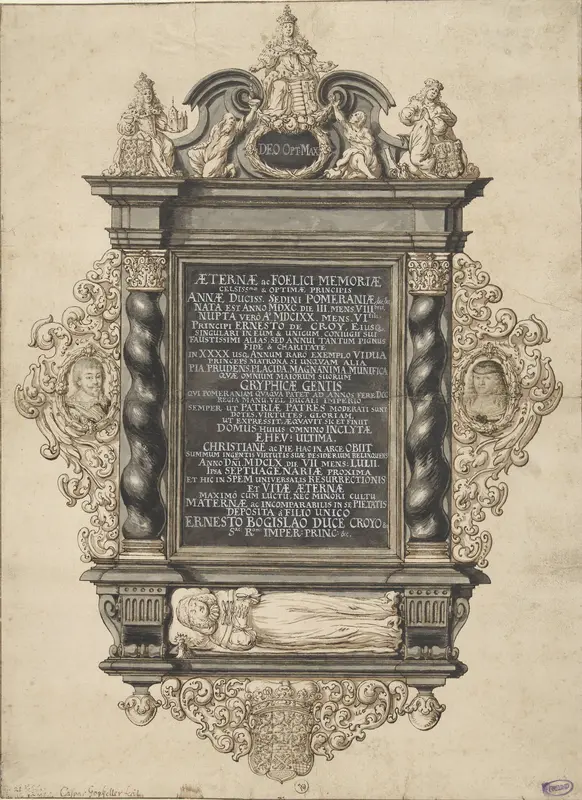 DEO OPT·MAX
ÆTERNÆ ac FOELICI MEMORIÆ
CELSISSmæ & OPTIMÆ PRINCIPIS
ANNÆ DUCISS. SEDINI POMERANIÆ &c &c
NATA EST ANNO MDXC DIE III MENS VIIIbris
NUPTA VERO Aº MDCIXX. MENS. VItilis
PRINCIPI ERNESTO DE CROY, EIUSQ;
SINGULARI IN EUM & UNICUM CONIUGII SUI
FAUSTISSIMI ALIAS, SED ANNUI TANTUM PIGNUS
FIDE & CHARITATE
IN XXXX USQ; ANNUM RARO EXEMPLO VIDUA
PRINCEPS MATRONA SI UNQUAM ALIA
PIA PRUDENS, PLACIDA, MAGNANIMA, MUNIFICA
QUÆ OMNIUM MAIORUM SUORUM
GRYPHICÆ GENTIS
QUI POMERANIAM QUAQUA PATET AD ANNOS FERE DCC
REGIA MANU, VEL DUCALI IMPERIO
SEMPER UT PATRIÆ PATRES MODERATI SUNT
DOTES, VIRTUTES, GLORIAM,
UT EXPRESSIT, ÆQUAVIT SIC ET FINIIT
DOMUS HUIUS OMNINO INCLYTÆ
EHEV! ULTIMA.
CHRISTIANE ac PIE HAC IN ARCE OBIIT
SUMMUM INGENTIS VIRTUTIS SUÆ DESIDERIUM RELINQUENS
ANNO DNI MDCLX DIE VII MENS: IULII.
IPSA SEPTUAGENARIÆ PROXIMA
ET HIC IN SPEM UNIVERSALIS RESURRECTIONIS
ET VITÆ ÆTERNÆ
MAXIMO CUM LUCTU, NEC MINORI CULTU
MATERNÆ ac INCOMPARABILIS IN SE PIETATIS
DEPOSITA à FILIO UNICO
ERNESTO BOGISLAO DUCE CROYO &c
S. ROM IMPER: PRINC· &c.
Caspar